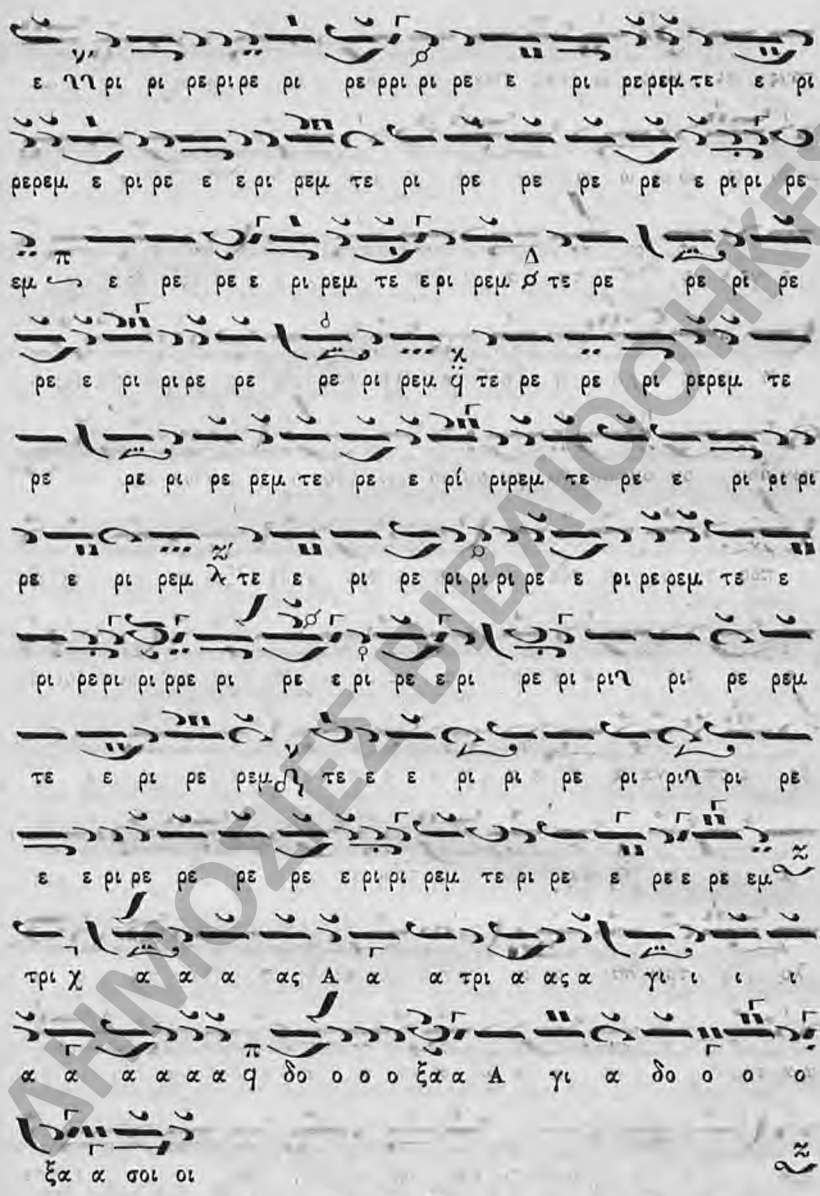 ε ρι ρι ρε ρι ρε ρι ρε ρρι ρι ρε ε ρι ρερεμ τε ε ρι
ρερεμ ε ρι ρε ε ε ρι ρεμ τε ρι ρε ρε ρε ρε ε ρι ρι ρε
εμ ε ρε ρε ε ρι ρεμ τε ε ρι ρεμ τε ρε ρε ρι ρε
ρε ε ρι ρι ρε ρε ρε ρι ρεμ τε ρε ρε ρι ρερεμ τε
ρε ρε ρι ρε ρεμ τε ρε ε ρί ριρεμ τε ρε ε ρι ρι ρι
ρε ε ρι ρεμ τε ε ρι ρε ρι ρι ρι ρε ε ρι ρε ρεμ τε ε
ρι ρε ρι ρι ρρε ρι ρε ε ρι ρε ε ρι ρε ρι ρι ρι ρε ρεμ
τε ε ρι ρε ρεμ τε ε ε ρι ρι ρε ρι ρι ρι ρε
ε ε ρι ρε ρε ρε ρε ε ρι ρι ρεμ τε ρι ρε ε ρε ε ρε εμ
τρι α α α ας Α α α τρι α ας α γι ι ι ι
α α α α α α δο ο ο ο ξα α Α γι α δο ο ο ο
ξα α σοι οι
ΔΗΜΟΣΙΕΣ ΒΙΒΛΙΟΘΗΚΕΣ